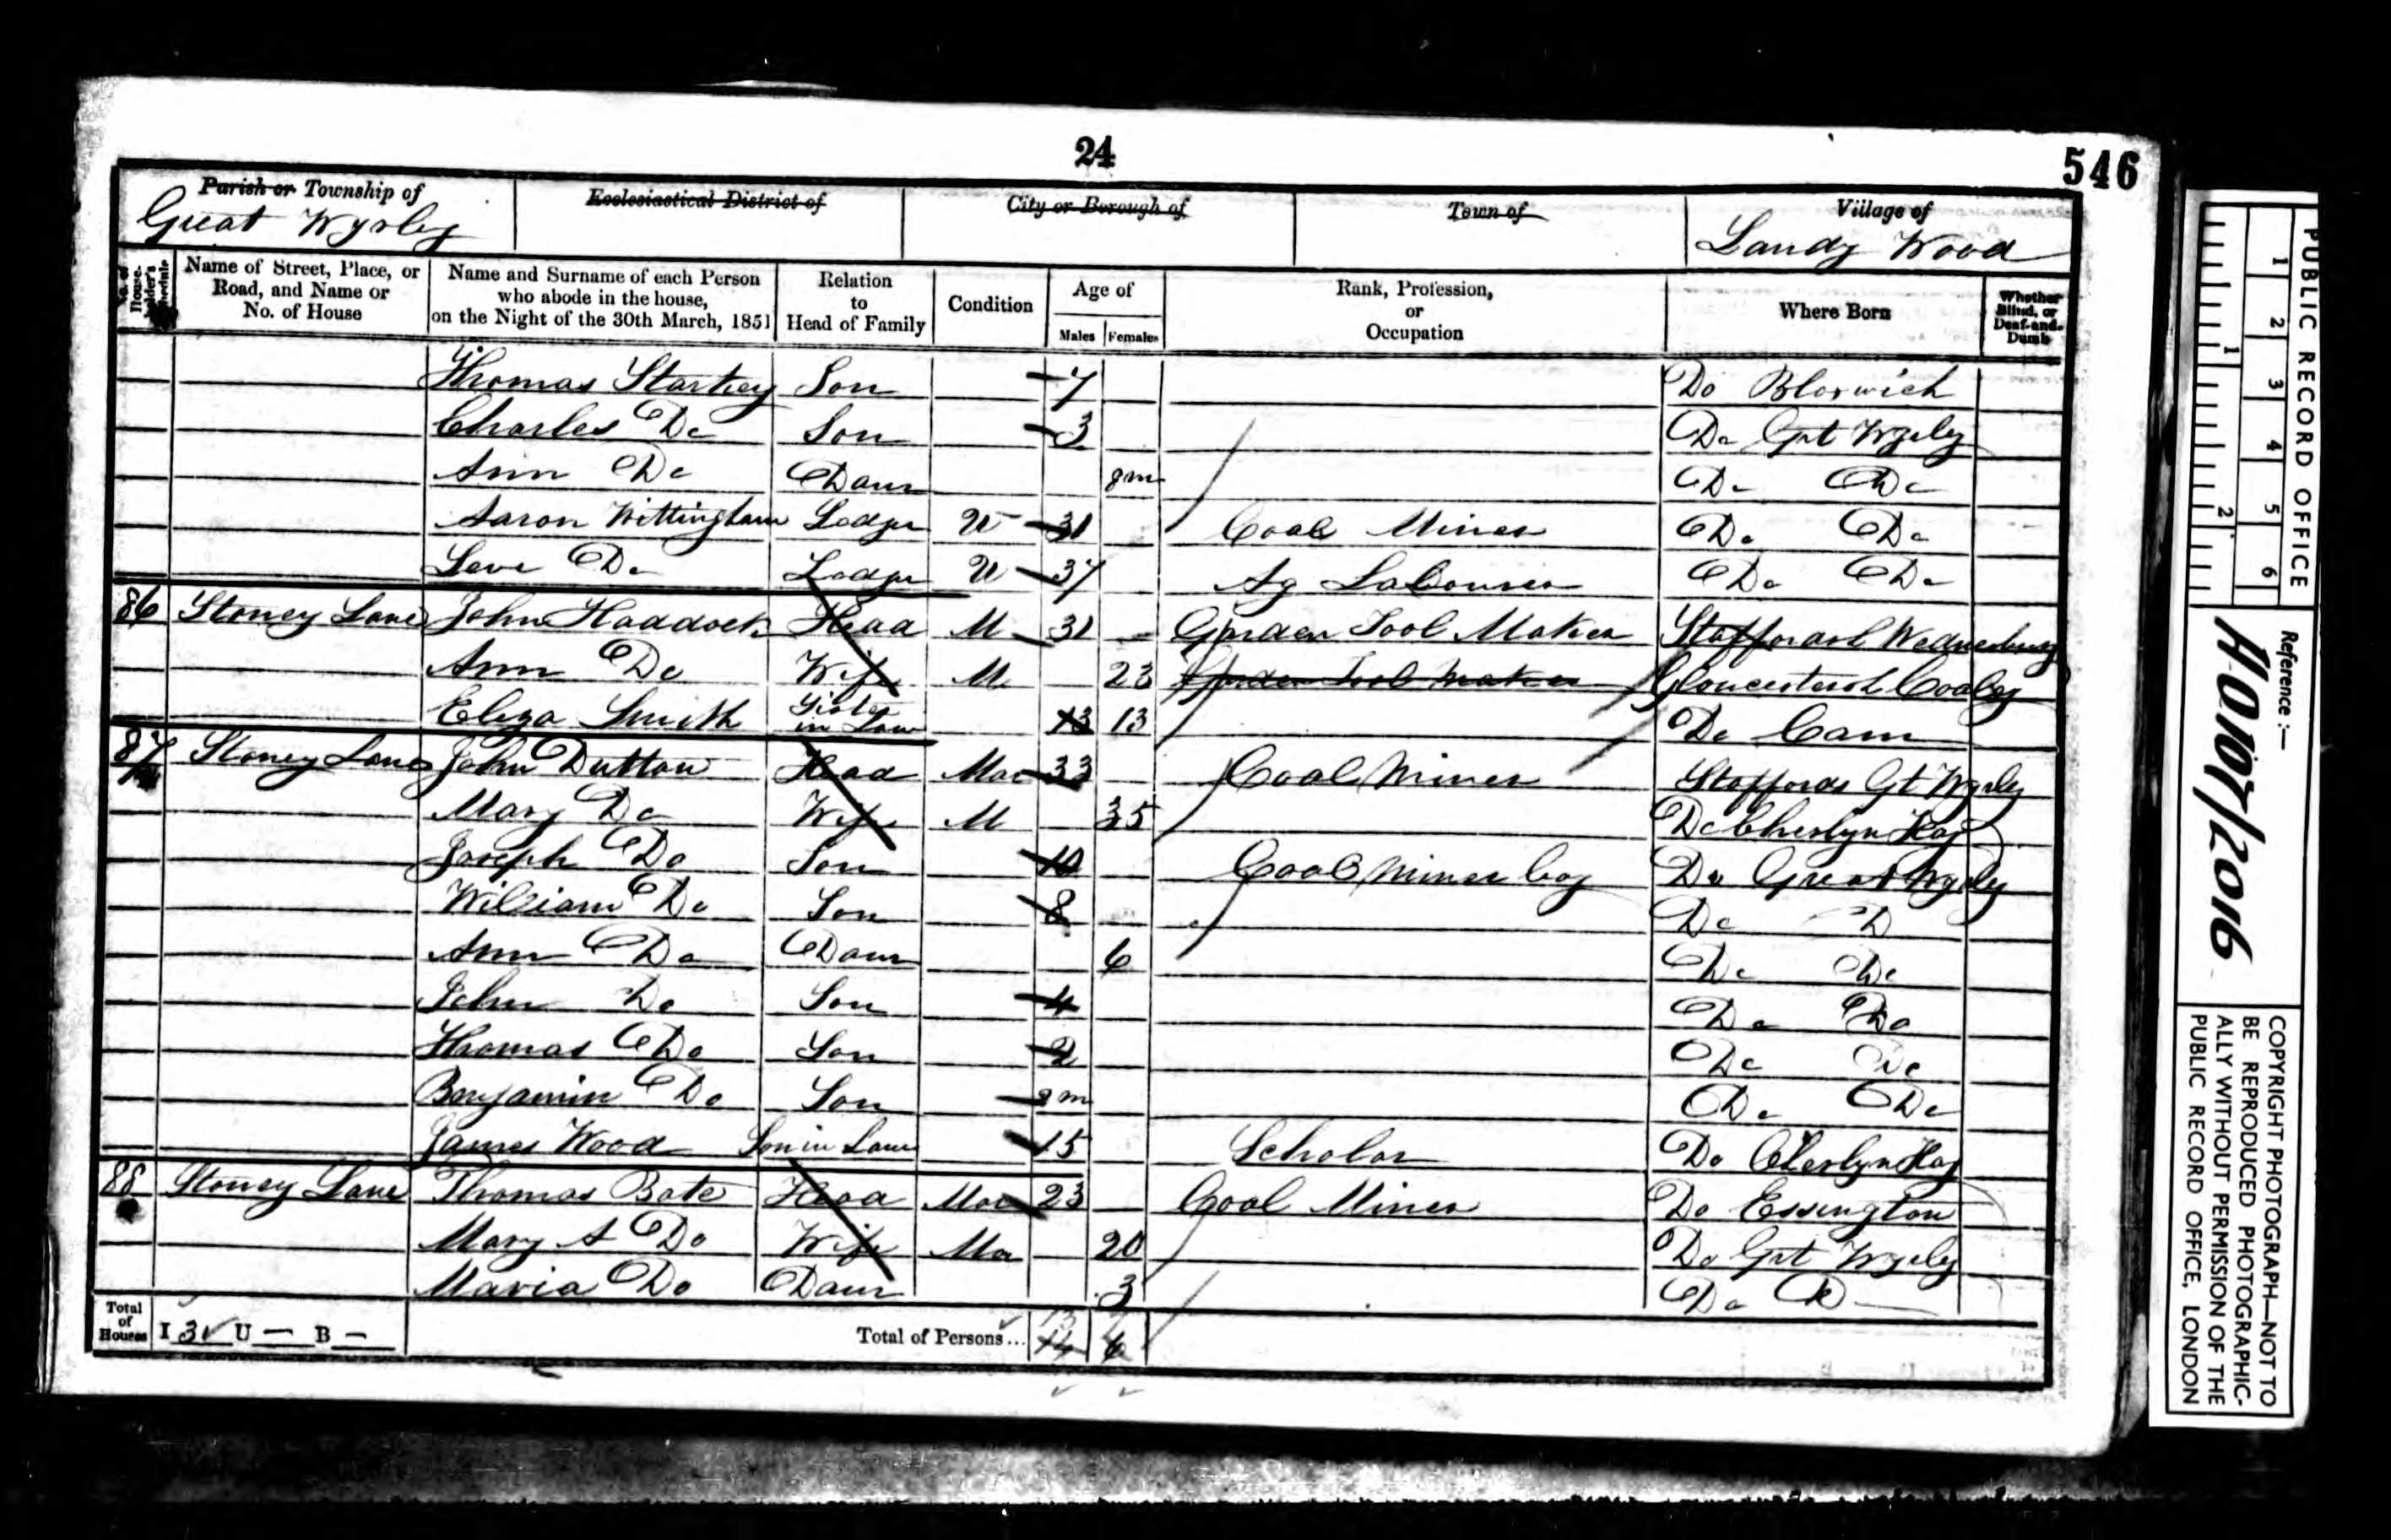 24
546
Parish or Township of
Great Wyrley
Ecclesiastical District of
City or Borough of
Town of
Village of
Landy Wood
No. of House-holder's Schedule
Name of Street, Place, or Road, and Name or No. of House
Name and Surname of each Person who abode in the house, on the Night of the 30th March, 1851
Relation to Head of Family
Condition
Age of
Males Females
Rank, Profession, or Occupation
Where Born
Whether Blind, or Deaf-and-Dumb
Thomas Starkey Son 7 Do Bloxwich
Charles Do Son 3 Do Grt Wyrley
Ann Do Daur 8m Do Do
Aaron Wittingham Lodger U 31 Coal Miner Do Do
Levi Do Lodger U 37 Ag Labourer Do Do
86 Stoney Lane John Haddock Head M 31 Garden Tool Maker Staffordsh Wednesbury
Ann Do Wife M 23 Garden Tool Maker Gloucestersh Coaley
Eliza Smith Sister in Law 13 13 Do Cam
87 Stoney Lane John Dutton Head Mar 33 Coal Miner Staffords Gt Wyrley
Mary Do Wife M 35 Do Cheslyn Hay
Joseph Do Son 10 Coal Miner boy Do Great Wyrley
William Do Son 8 Do D
Ann Do Daur 6 Do Do
John Do Son 4 Do Do
Thomas Do Son 2 Do Do
Benjamin Do Son 2m Do Do
James Wood Son in Law 15 Scholar Do Cheslyn Hay
88 Stoney Lane Thomas Bate Head Mar 23 Coal Miner Do Essington
Mary A Do Wife Mar 20 Do Grt Wyrley
Maria Do Daur 3 Do D
Total of Houses I 3 U — B —
Total of Persons... 14 6
13
PUBLIC RECORD OFFICE
1 2 3 4 5 6
1 2
Reference:—
HO107/2016
COPYRIGHT PHOTOGRAPH—NOT TO
BE REPRODUCED PHOTOGRAPHIC-
ALLY WITHOUT PERMISSION OF THE
PUBLIC RECORD OFFICE, LONDON